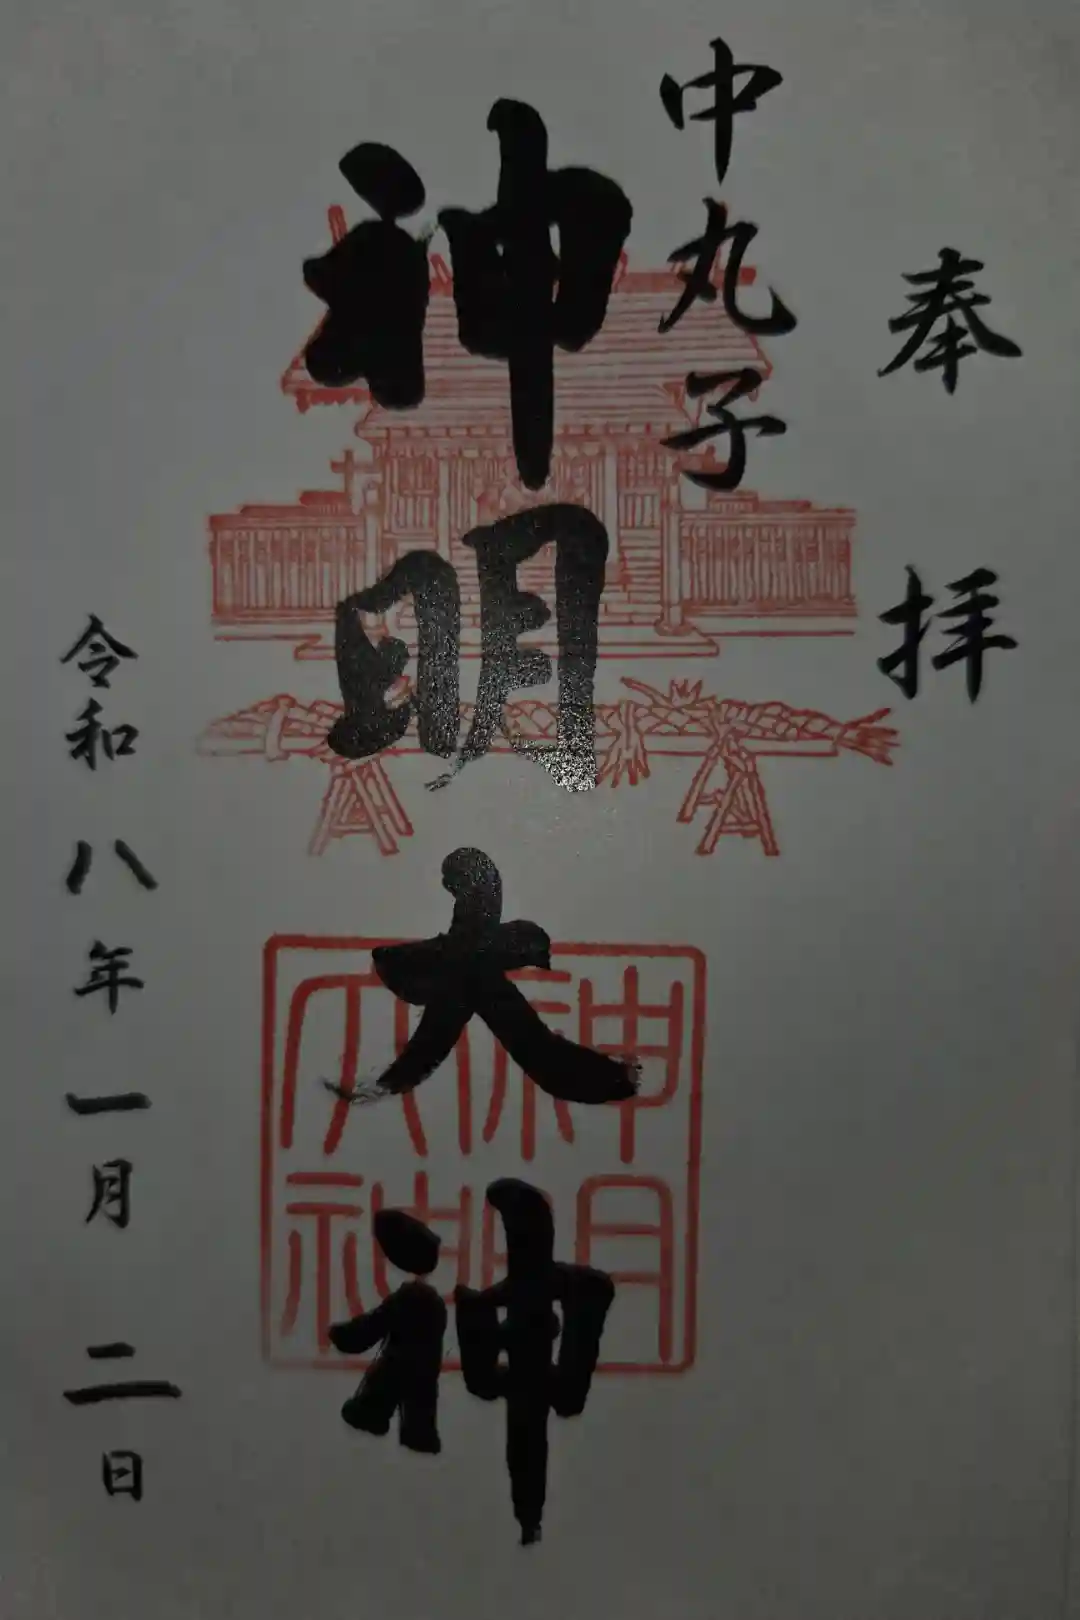 奉拝
中丸子
神明大神
神明
大神
令和八年一月二日